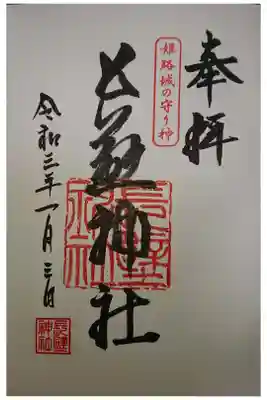 奉拝
姫路城の守り神
長壁神社
長壁神社
令和三年一月三日
長壁神社